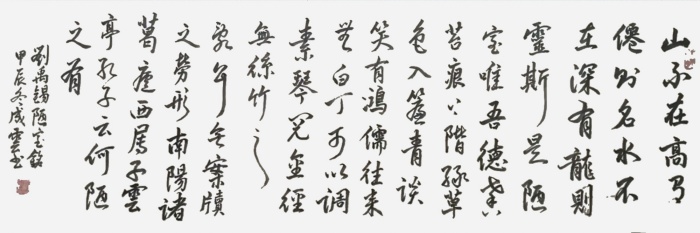 山不在高有
僊則名水不
在深有龍則
靈斯是陋
室唯吾德馨
苔痕上階綠草
色入簾青談
笑有鴻儒往来
無白丁可以調
素琴閱金經
無絲竹之
亂耳無案牘
之勞形南陽諸
葛廬西蜀子雲
亭孔子云何陋
之有
劉禹錫陋室銘
甲辰冬成雲書